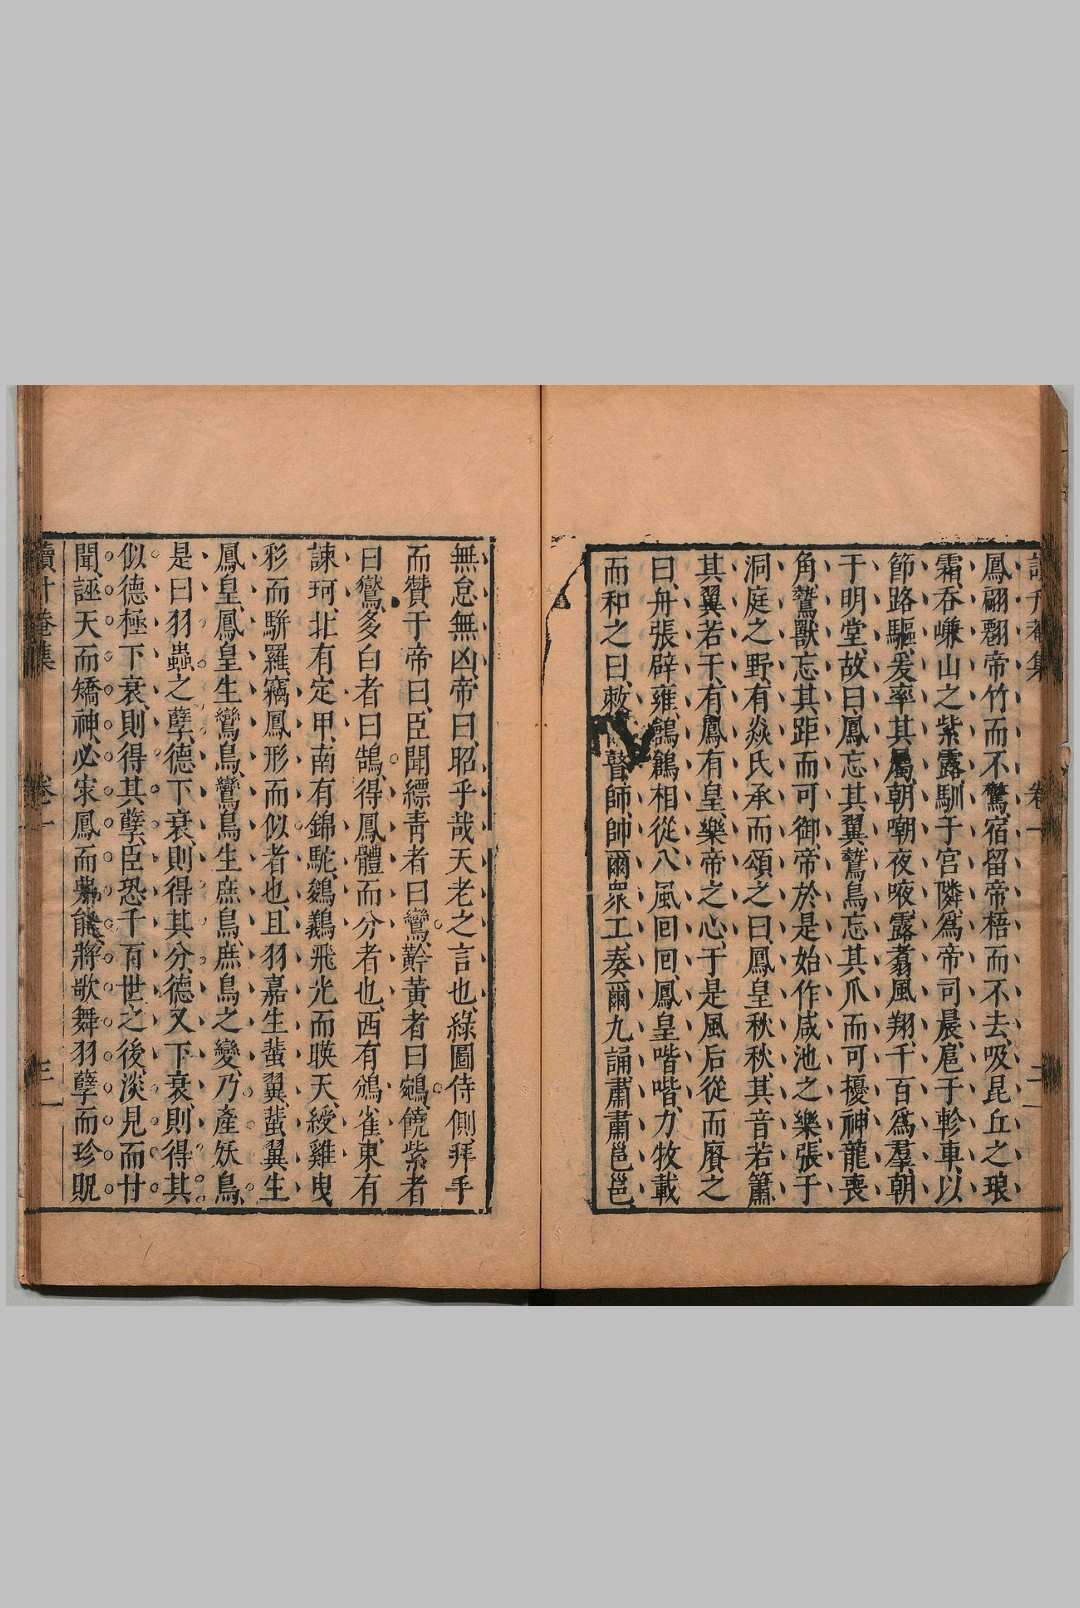 鳳翩翾帝竹而不驚、宿留帝梧而不去、吸昆丘之琅
霜、吞嵰山之紫露、馴于宫隣、爲帝司晨、扈于軫車、以
節路驅、爰率其屬、朝嘲夜唳、露翥風翔、千百爲羣、朝
于明堂、故曰、鳳忘其翼、鷙鳥忘其爪而可擾、神龍喪
角、鷙獸忘其距而可御、帝於是始作咸池之樂、張于
洞庭之野、有焱氏承而頌之曰、鳳皇秋秋、其音若簫
其翼若干、有鳳有皇、樂帝之心、于是風后從而賡之
曰、舟張辟雍、鶬鶬相從、八風囘囘、鳳皇喈喈、力牧載
而和之曰、敕 瞽師、帥爾衆工、奏爾九誦、肅肅邕邕
無怠無凶、帝曰、昭乎哉天老之言也、綠圖侍側、拜手
而贊于帝曰、臣聞縹靑者曰鸞、黅黃者曰鵷、饒紫者
曰鸑、多白者曰鵠、得鳳體而分者也、西有鴆雀、東有
諫珂、北有定甲、南有錦駝、鷄鶈飛光而暎天、綬雞曳
彩而駢羅、竊鳳形而似者也、且羽嘉生蜚翼、蜚翼生
鳳皇、鳳皇生鸞鳥、鸞鳥生庶鳥、庶鳥之變、乃產妖鳥、
是曰羽蟲之孽、德下衰、則得其分、德又下衰、則得其
似、德極下衰、則得其孽、臣恐千百世之後、淡見而甘
聞、誣天而矯神、必宋鳳而 能、將歌舞羽孽而珍貺
卷一